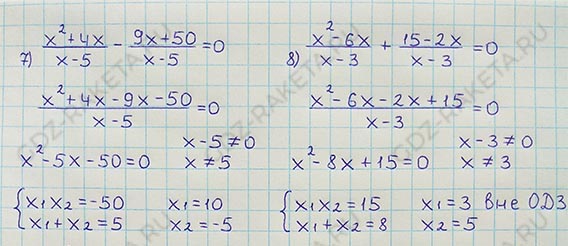 7) (x²+4x)/(x-5) - (9x+50)/(x-5) = 0
(x²+4x-9x-50)/(x-5) = 0
x-5≠0
x²-5x-50=0 x≠5
{x₁x₂=-50 x₁=10
x₁+x₂=5 x₂=-5
8) (x²-6x)/(x-3) + (15-2x)/(x-3) = 0
(x²-6x-2x+15)/(x-3) = 0
x-3≠0
x²-8x+15=0 x≠3
{x₁x₂=15 x₁=3 вне ОДЗ
x₁+x₂=8 x₂=5
GDZ-RAKETA.RU